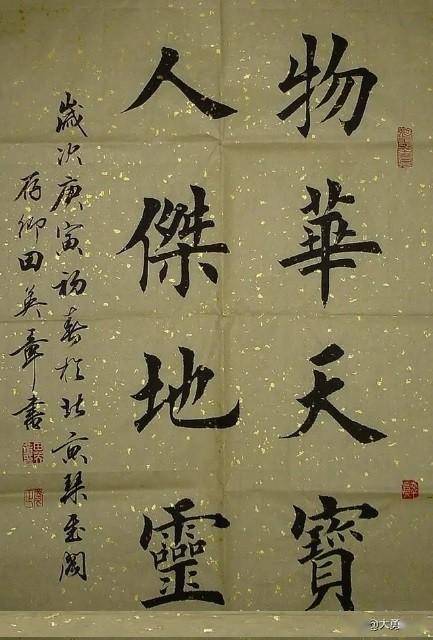 物華天寶
人傑地靈
歲次庚寅初春於北京閣
存卿田英章書
@大勇